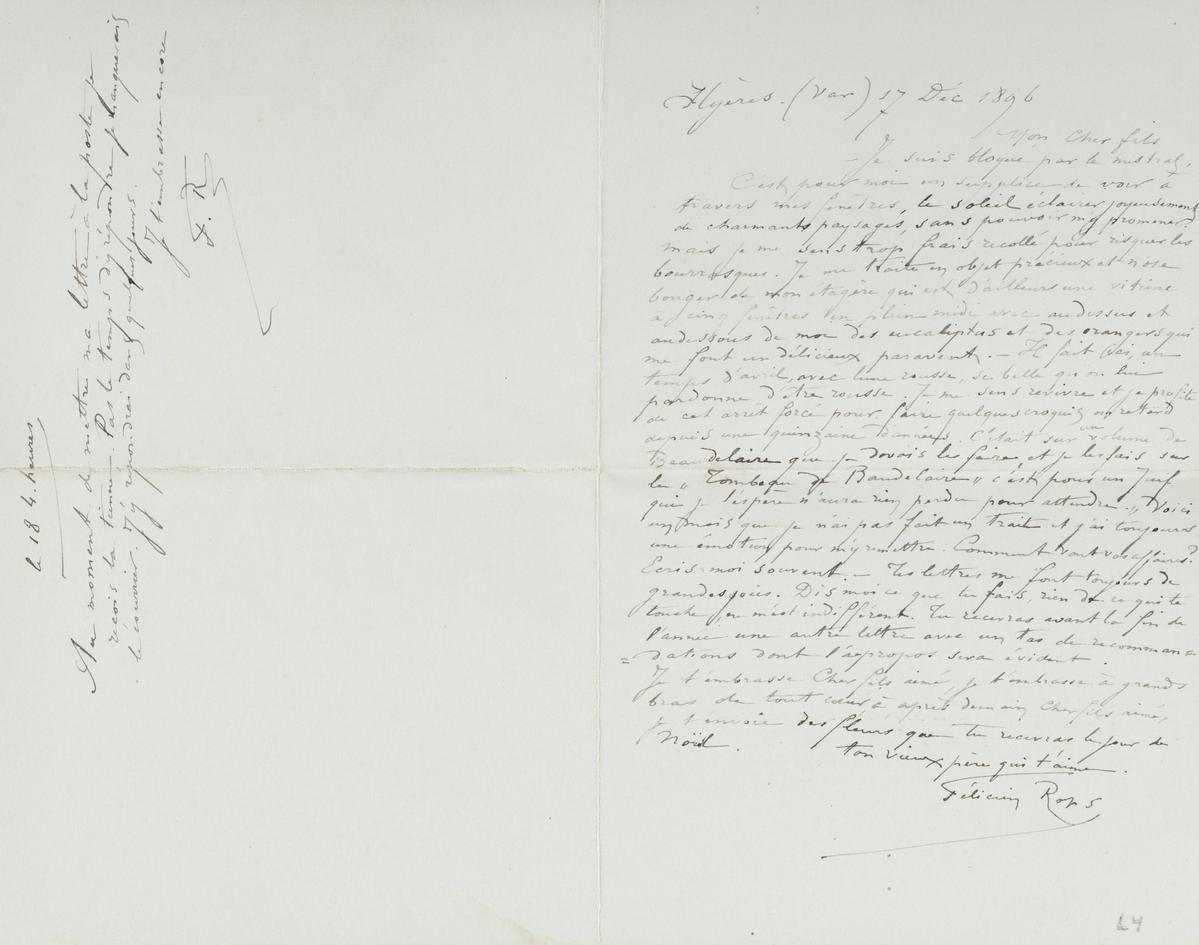 Hyères. (Var) 17 Déc 1896
Mon Cher fils
– Je suis bloqué par le mistral,
C'est pour moi un supplice de voir à
travers mes fenêtres, le soleil éclairer joyeusement
de charmants paysages, sans pouvoir m'y promener!
mais je me sens trop frais recollé pour risquer les
bourrasques. Je me traite en objet précieux et n'ose
bouger de mon étagère qui est d'ailleurs une vitrine
à cinq fenêtres en plein midi avec au dessus et
au dessous de moi des eucaliptus et des orangers qui
me font un délicieux paravent. – Il fait ici, un
temps d'avril, avec lune rousse, si belle qu'on lui
pardonne d'être rousse. Je me sens revivre et je profite
de cet arrêt forcé pour faire quelques croquis en retard
depuis une quinzaine d'années. C'était sur un volume de
Beaudelaire que je devais les faire et je les fais sur
le „ Tombeau de Baudelaire „ c'est pour un Juif
qui je l'espère n'aura rien perdu pour attendre. „ Voici
un mois que je n'ai pas fait un trait et j'ai toujours
une émotion pour m'y remettre. Comment vont vos affaires?
Ecris-moi souvent. – Tes lettres me font toujours de
grandes joies. Dis moi ce que tu fais, rien de ce qui te
touche, ne m'est indifférent. Tu recevras avant la fin de
l'année une autre lettre avec un tas de recomman=
=dations dont l'àepropos sera évident.
Je t'embrasse Cher fils aimé, je t'embrasse à grands
bras de tout cœur à après demain Cher fils aimé,
je t'envoie des fleurs que tu recevras le jour de
Noël.
ton vieux père qui t'aime.
Félicien Rops
le 18 4. heures
Au moment de mettre ma lettre à la poste je
reçois la tienne. Pas le temps d'y répondre je manquerais
le courrier. J'y répondrai dans quelques jours.
Je t'embrasse encore
F. R
L4